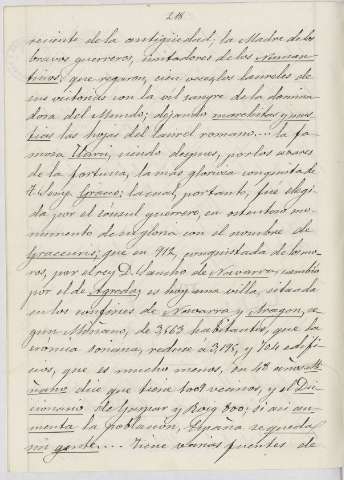 218
reciente de la antigüedad; la Madre de los
bravos guerreros, imitadores de los Numan-
tinos, que regaron, cien veces los laureles de
sus victorias con la vil sangre de la domina-
dora del Mundo; dejando marchitas y mus-
tias las hojas del laurel romano.... la fa-
mosa Ilurci, siendo despues, por los azares
de la fortuna, la más gloriosa conquista de
T. Semp. Graco; la cual, por tanto, fue elegi-
da por el cónsul guerrero, en ostentoso mo-
numento de su gloria con el nombre de
Graccuris; que en 912, conquistada de los mo-
ros, por el rey D. Sancho de Navarra, cambió
por el de Agreda; es hoy una villa, situada
en los confines de Navarra y Aragon, se-
gun Moñano, de 3,663 habitantes, que la
crónica soriana, reduce á 3,195, y 704 edifi-
cios, que es mucho menos, en 48 años
dice que tiene 1001 vecinos, y el Dic-
cionario de Gaspar y Roig 800; si asi au-
menta la poblacion, España se queda
sin gente.... Tiene varias fuentes de